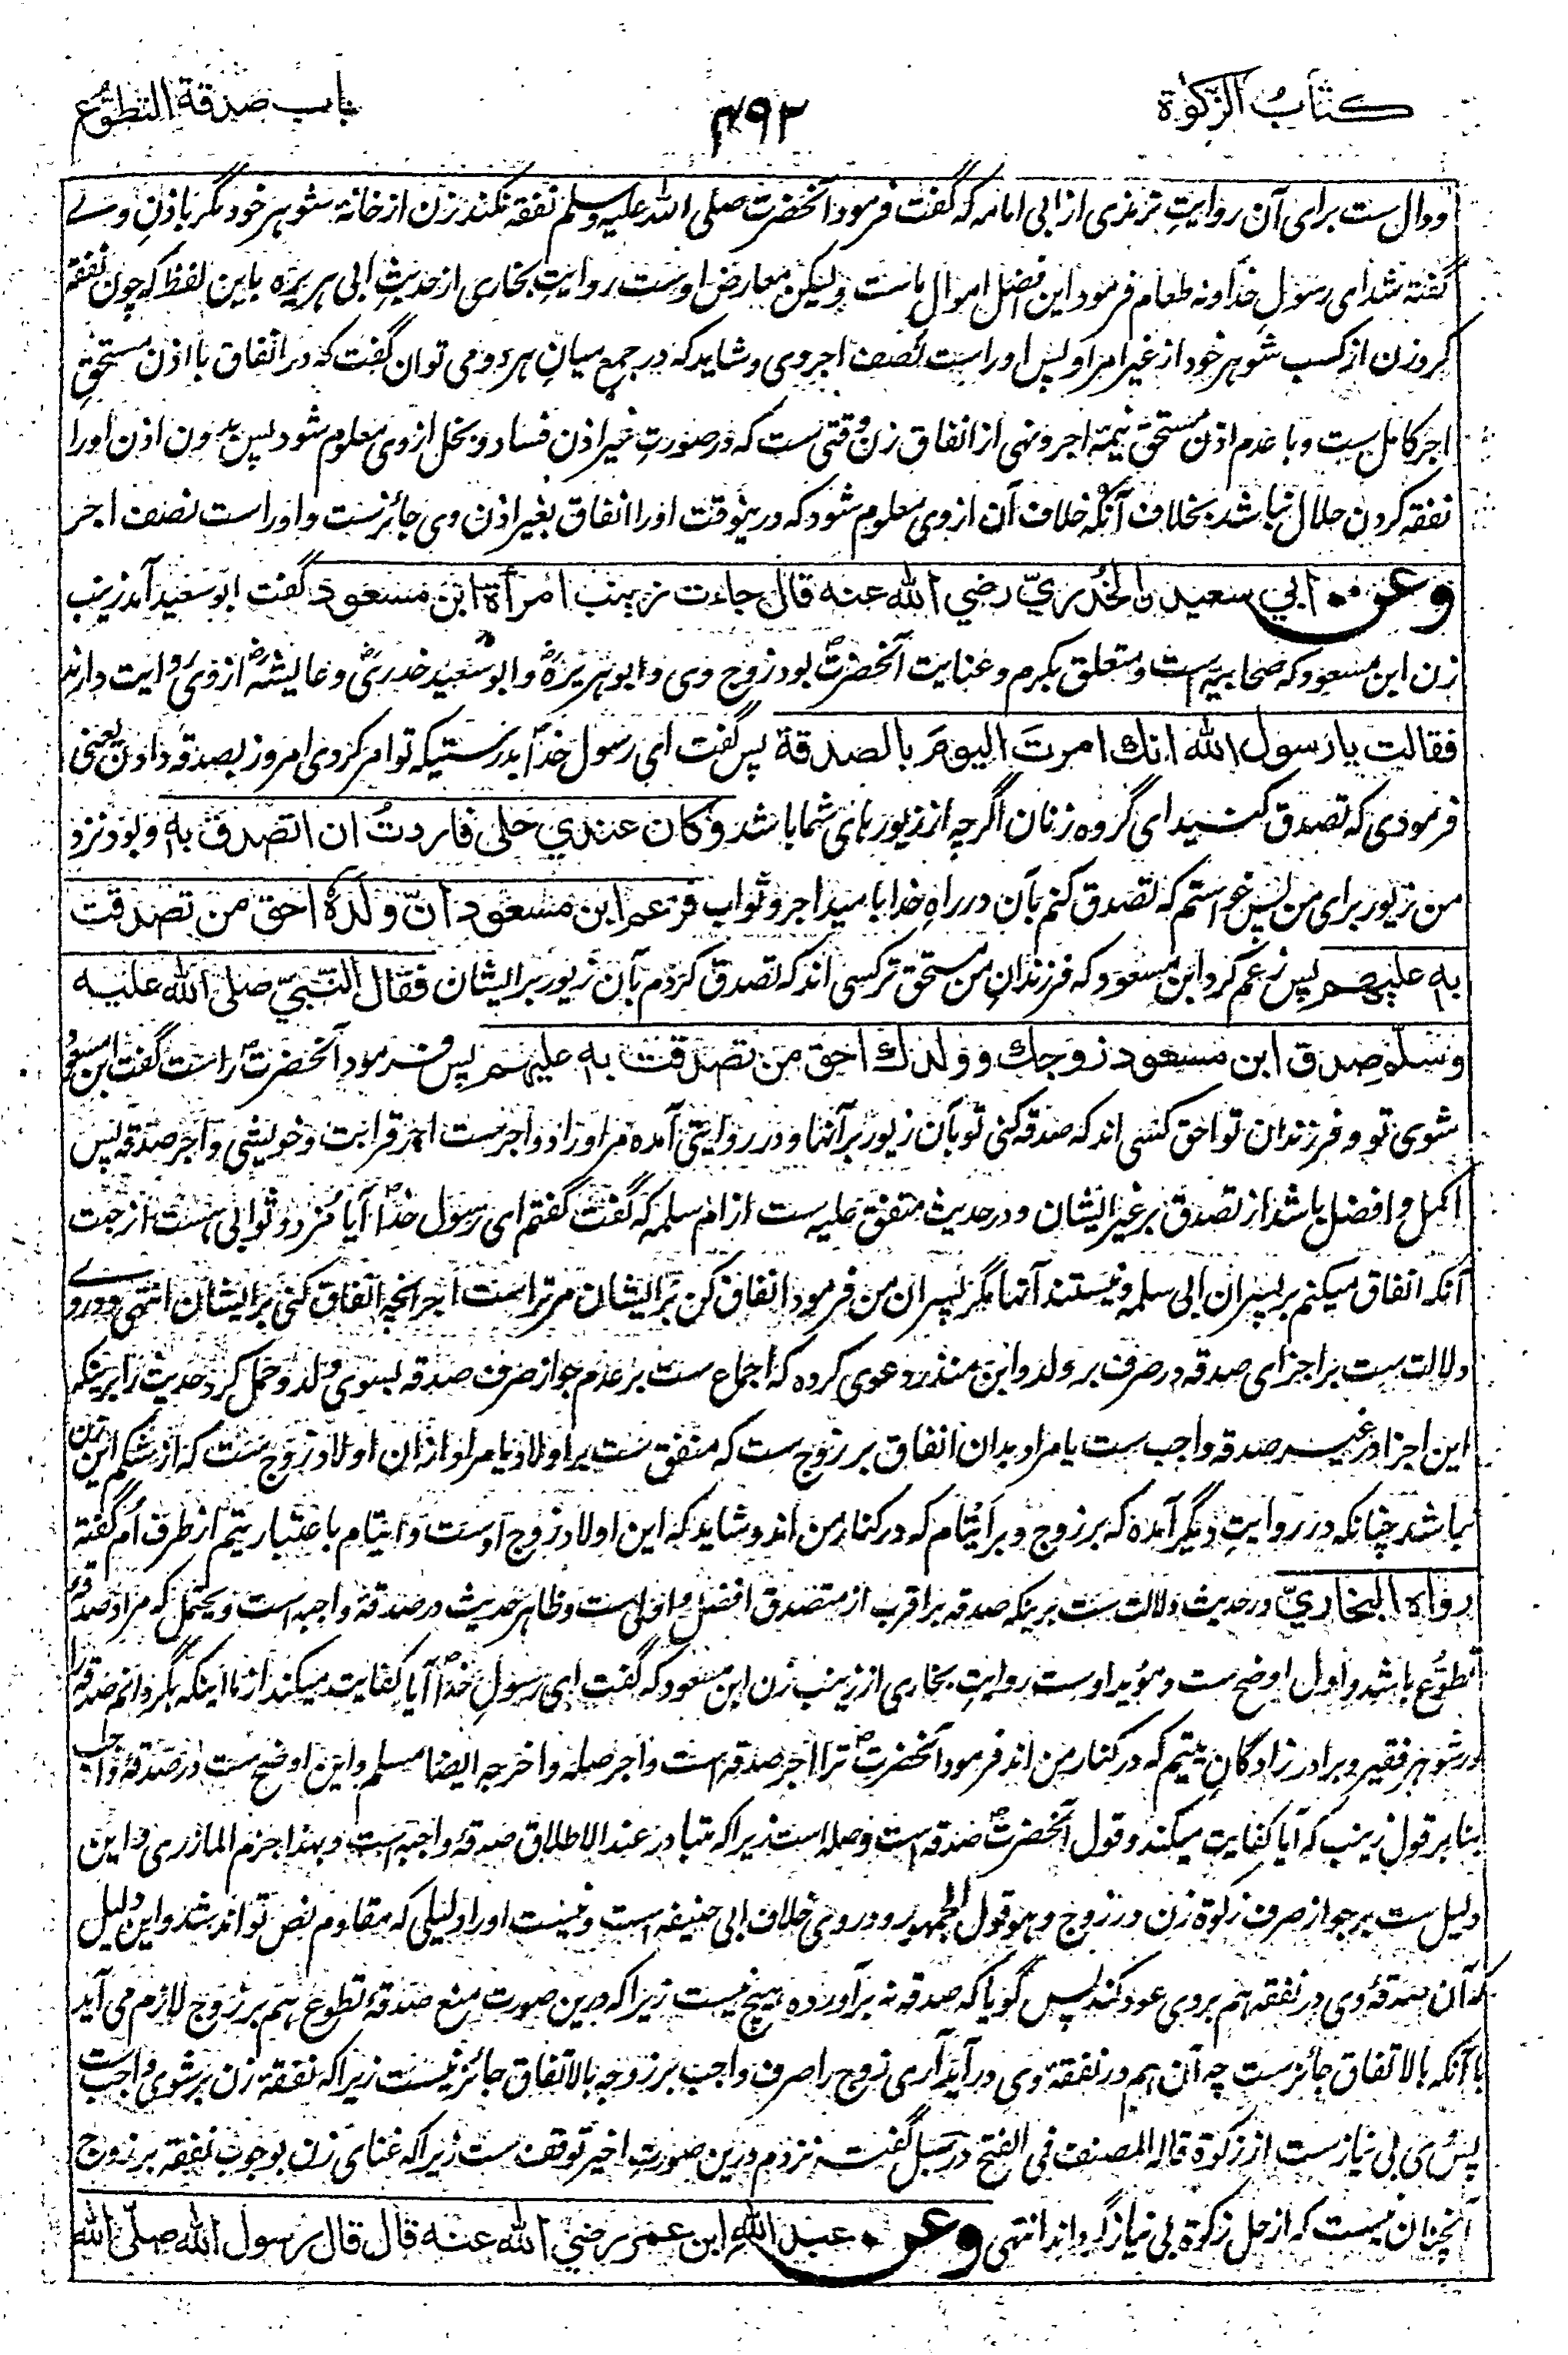 كتاب الزكوة
۴۹۲
باب صدقة التطوع
ودال ست برای آن روایتِ ترمذی از ابی امامه که گفت فرمود آنحضرت صلی الله علیه وسلم نفقه نکند زن از خانهٔ شوهر خود مگر باذنِ وے
گفته شد ای رسولِ خدا و نه طعام فرمود این افضل اموال ماست ولیکن معارض اوست روایتِ بخاری از حدیثِ ابی هریره باین لفظ که چون نفقه
کرد زن از کسب شوهر خود از غیر امر او پس او راست نصف اجر وی و شاید که در جمع میانِ هر دو می توان گفت که در انفاق با اذن مستحقِ
اجر کامل ست و با عدم اذن مستحق نیمهٔ اجر و نهی از انفاق زن وقتی ست که در صورتِ غیر اذن فساد و بخل از وی معلوم شود پس بدون اذن او را
نفقه کردن حلال نباشد بخلاف آنکه خلاف آن از وی معلوم شود که درینوقت او را انفاق بغیر اذن وی جائزست و او راست نصف اجر
وعن ابي سعيد ن الخدريّ رضي الله عنه قال جاءت زينب امرأة ابن مسعود گفت ابو سعید آمد زینب
زن ابن مسعود که صحابیه ست و متعلق بکرم و عنایت آنحضرت بود زوج وی و ابو هریره و ابو سعید خدری و عایشه از وی روایت دارند
فقالت يا رسول الله انك امرتَ اليومَ بالصدقة پس گفت ای رسول خدا بدرستیکه تو امر کردی امروز بصدقه دادن یعنی
فرمودی که تصدق کنید ای گروه زنان اگرچه از زیورهای شما باشد وكان عندي حلي فاردتُ ان اتصدق به و بود نزد
من زیور برای من پس خواستم که تصدق کنم بآن در راهِ خدا بامید اجر و ثواب فزعم ابن مسعود انّ ولده احق من تصدقت
به عليهم پس زعم کرد ابن مسعود که فرزندانِ من مستحق تر کسی اند که تصدق کردم بآن زیور بر ایشان فقال النبيّ صلى الله عليه
وسلم صدق ابن مسعود زوجك وولدك احق من تصدقت به عليهم پس فرمود آنحضرت راست گفت ابن مسعود
شوی تو و فرزندان تو احق کسی اند که صدقه کنی تو بآن زیور بر آنها و در روایتی آمده مر او را دو اجرست اجر قرابت و خویشی و اجر صدقه پس
اکمل و افضل باشد از تصدق بر غیر ایشان و در حدیث متفق علیه ست از ام سلمه که گفت گفتم ای رسول خدا آیا مزد و ثوابی هست از جهت
آنکه انفاق میکنم بر پسران ابی سلمه و نیستند آنها مگر پسران من فرمود انفاق کن بر ایشان مر تراست اجر آنچه انفاق کنی بر ایشان انتهی و درو
دلالت ست بر اجزای صدقه در صرف بر ولد و ابن منذر دعوی کرده که اجماع ست بر عدم جواز صرف صدقه بسوی ولد و حمل کرد حدیث را برینکه
این اجزا در غیر صدقه واجب ست یا مراد بدان انفاق بر زوج ست که منفق ست بر اولاد یا مراد ازان اولاد زوج ست که از شکم این زن
نباشد چنانکه در روایتِ دیگر آمده که بر زوج و بر ایتام که در کنار من اند و شاید که این اولاد زوج اوست و ایتام باعتبار یتم از طرف ام گفته
رواه البخاريّ و در حدیث دلالت ست برینکه صدقه بر اقرب از متصدق افضل و اولی ست و ظاهر حدیث در صدقهٔ واجبه است و یحتمل که مراد صدقهٔ
تطوّع باشد و اول اوضح ست و مؤید اوست روایتِ بخاری از زینب زن ابن مسعود که گفت ای رسولِ خدا آیا کفایت میکند از ما اینکه بگردانم صدقه را
در شوهر فقیر و برادر زادگانِ یتیم که در کنار من اند فرمود آنحضرت ترا اجر صدقه است و اجر صله و اخرجه ایضا مسلم و این اوضح ست در صدقهٔ واجب
بنابر قول زینب که آیا کفایت میکند و قول آنحضرت صدقه است و صله است زیراکه متبادر عند الاطلاق صدقهٔ واجبه است و بهذا جزم المازری و این
دلیل ست بر جواز صرف زکوة زن در زوج و هو قول الجمهور و در وی خلاف ابی حنیفه است و نیست او را دلیلی که مقاوم نص تواند شد و این دلیل
که آن صدقهٔ وی در نفقه هم بر وی عود کند پس گویا که صدقه نه برآورده هیچ نیست زیراکه درین صورت منع صدقهٔ تطوع هم بر زوج لازم می آید
با آنکه بالاتفاق جائزست چه آن هم در نفقهٔ وی در آید آری زوج را صرف واجب بر زوجه بالاتفاق جائز نیست زیراکه نفقهٔ زن بر شوی واجب است
پس وی بی نیازست از زکوة قاله المصنف فی الفتح در سبل گفت نزدم درین صورتِ اخیر توقف ست زیراکه غنای زن بوجوب نفقه بر زوج
آنچنان نیست که از حل زکوة بی نیاز گرداند انتهی وعن عبد الله ابن عمر رضي الله عنه قال قال رسول الله صلّى الله